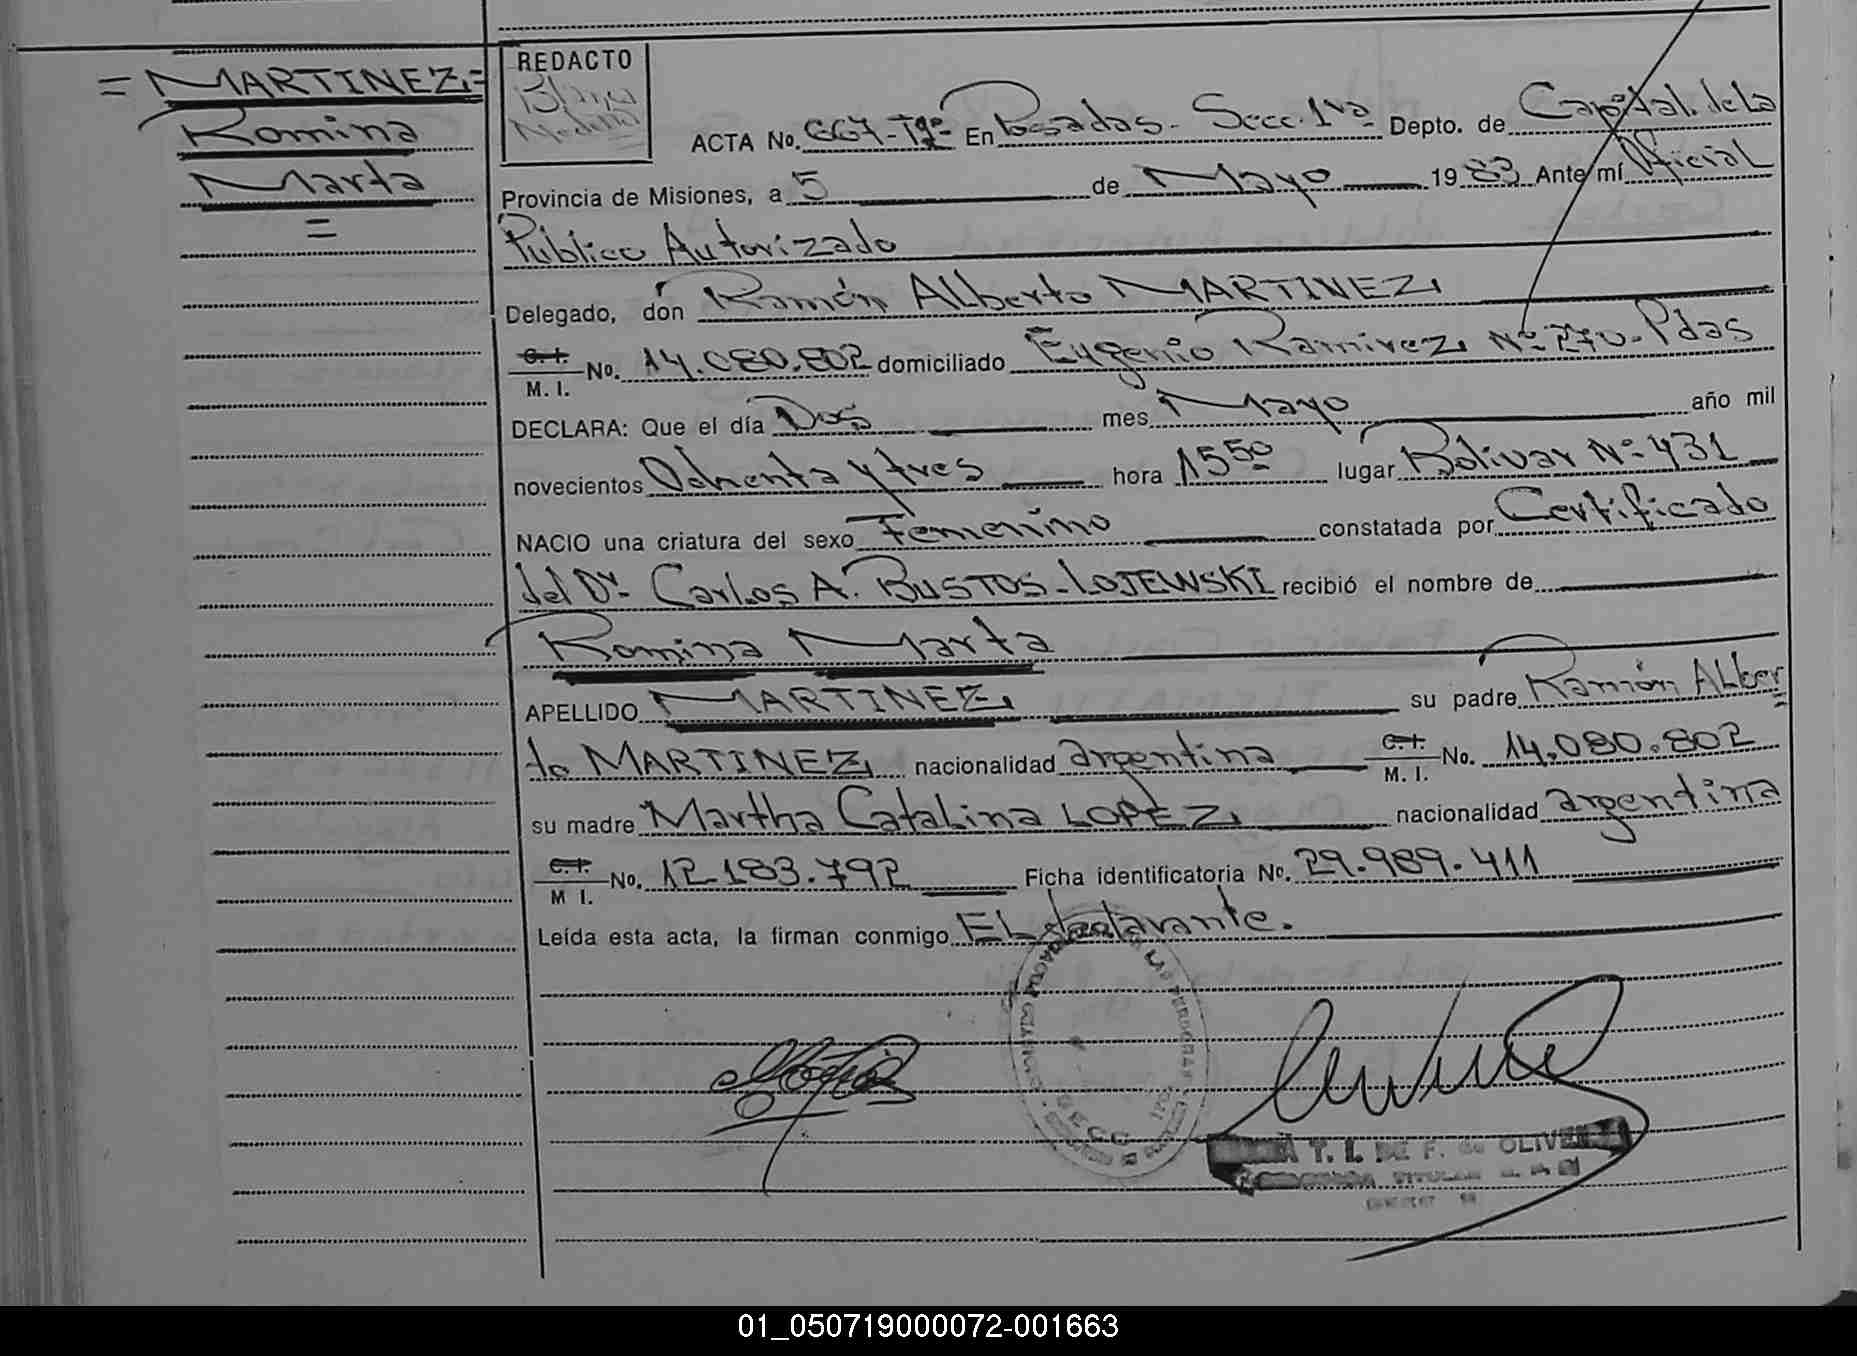 = MARTINEZ =
Romina
Marta
=
REDACTO
ACTA No. 667-Tº En Posadas - Secc. 1ra Depto. de Capital. de La
Provincia de Misiones, a 5 de Mayo 1983 Ante mí Oficial
Público Autorizado
Delegado, don Ramón Alberto MARTINEZ
C. I. / M. I. No. 14.080.802 domiciliado Eugenio Ramirez Nº 270 - Pdas
DECLARA: Que el día Dos mes Mayo año mil
novecientos Ochenta y tres hora 15 50 lugar Bolivar Nº 431
NACIO una criatura del sexo Femenino constatada por Certificado
del Dr. Carlos A. BUSTOS-LOJEWSKI recibió el nombre de
Romina Marta
APELLIDO MARTINEZ su padre Ramón Alber=
to MARTINEZ nacionalidad argentina C. I. / M. I. No. 14.080.802
su madre Martha Catalina LOPEZ nacionalidad argentina
C. I. / M I. No. 12.183.792 Ficha identificatoria No. 29.989.411
Leída esta acta, la firman conmigo El declarante.
T. I. DE F. de OLIVEIRA
01_050719000072-001663